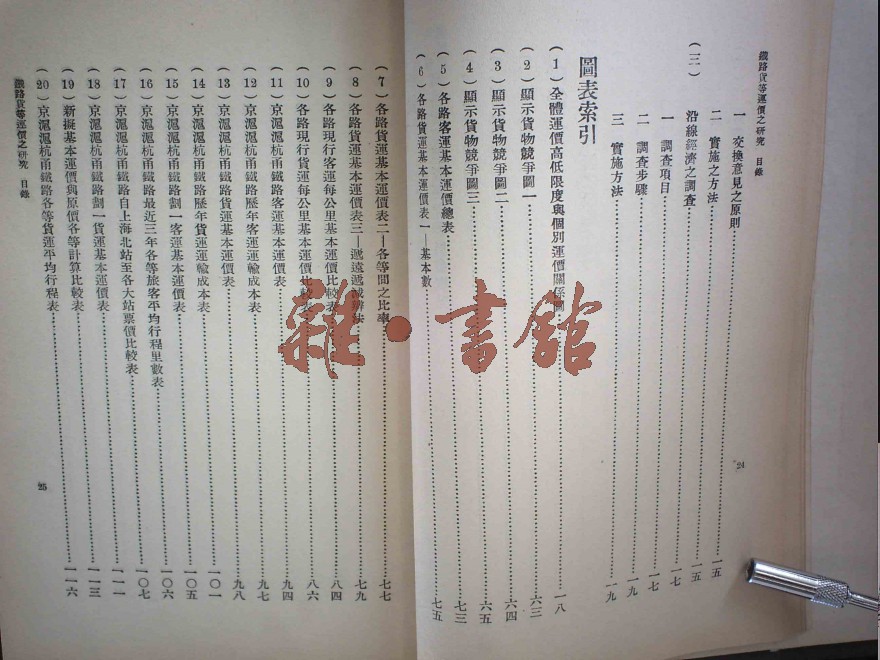 鐵路貨等運價之研究　目錄
一　交換意見之原則……一五
二　實施之方法……一五
(三)　沿線經濟之調查……一五
一　調查項目……一七
二　調查步驟……一九
三　實施方法……一九
圖表索引
(1) 全體運價高低限度與個別運價關係圖……一八
(2) 顯示貨物競爭圖一……六三
(3) 顯示貨物競爭圖二……六四
(4) 顯示貨物競爭圖三……六五
(5) 各路客運基本運價總表……七三
(6) 各路貨運基本運價表一—基本數……七五
24
(7) 各路貨運基本運價表二—各等間之比率……七七
(8) 各路貨運基本運價表三—遞遠遞減辦法……七九
(9) 各路現行客運每公里基本運價比較表……八四
(10) 各路現行貨運每公里基本運價比較表……八六
(11) 京滬滬杭甬鐵路客運基本運價表……九四
(12) 京滬滬杭甬鐵路歷年客運運輸成本表……九七
(13) 京滬滬杭甬鐵路貨運基本運價表……九八
(14) 京滬滬杭甬鐵路歷年貨運運輸成本表……一〇一
(15) 京滬滬杭甬鐵路劃一客運基本運價表……一〇五
(16) 京滬滬杭甬鐵路最近三年各等旅客平均行程里數表……一〇六
(17) 京滬滬杭甬鐵路自上海北站至各大站票價比較表……一〇七
(18) 京滬滬杭甬鐵路劃一貨運基本運價表……一一一
(19) 新擬基本運價與原價各等計算比較表……一一三
(20) 京滬滬杭甬鐵路各等貨運平均行程表……一一六
鐵路貨等運價之研究　目錄
25
雜·書館